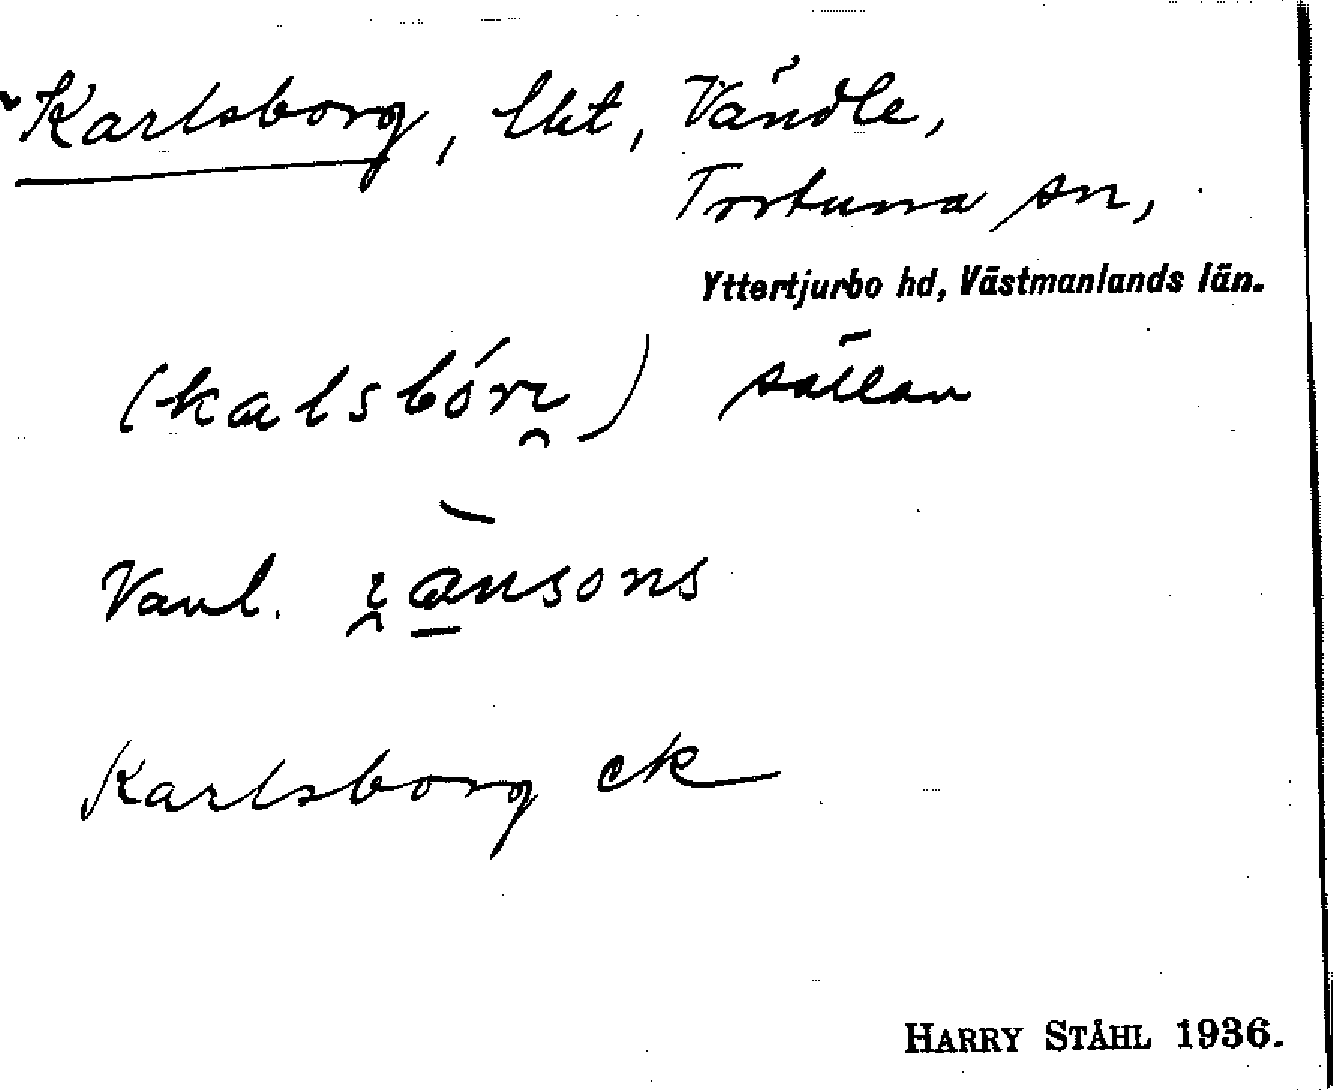 Karlsborg, lht, Vändle,
Tortuna sn,
Yttertjurbo hd, Västmanlands län.
sällan
Vanl.
Karlsborg ek
HARRY STÅHL 1936.